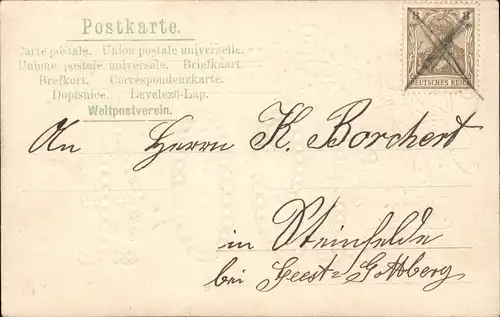 Postkarte.
Carte postale. Union postale universelle.
Unione postale universale. Briefkaart.
Brefkort. Correspondenzkarte.
Dopisnice. Levelező-Lap.
Weltpostverein.
3 3
DEUTSCHES REICH
An Herrn K. Borchert
in Steinfelde
bei Seest-Gottberg